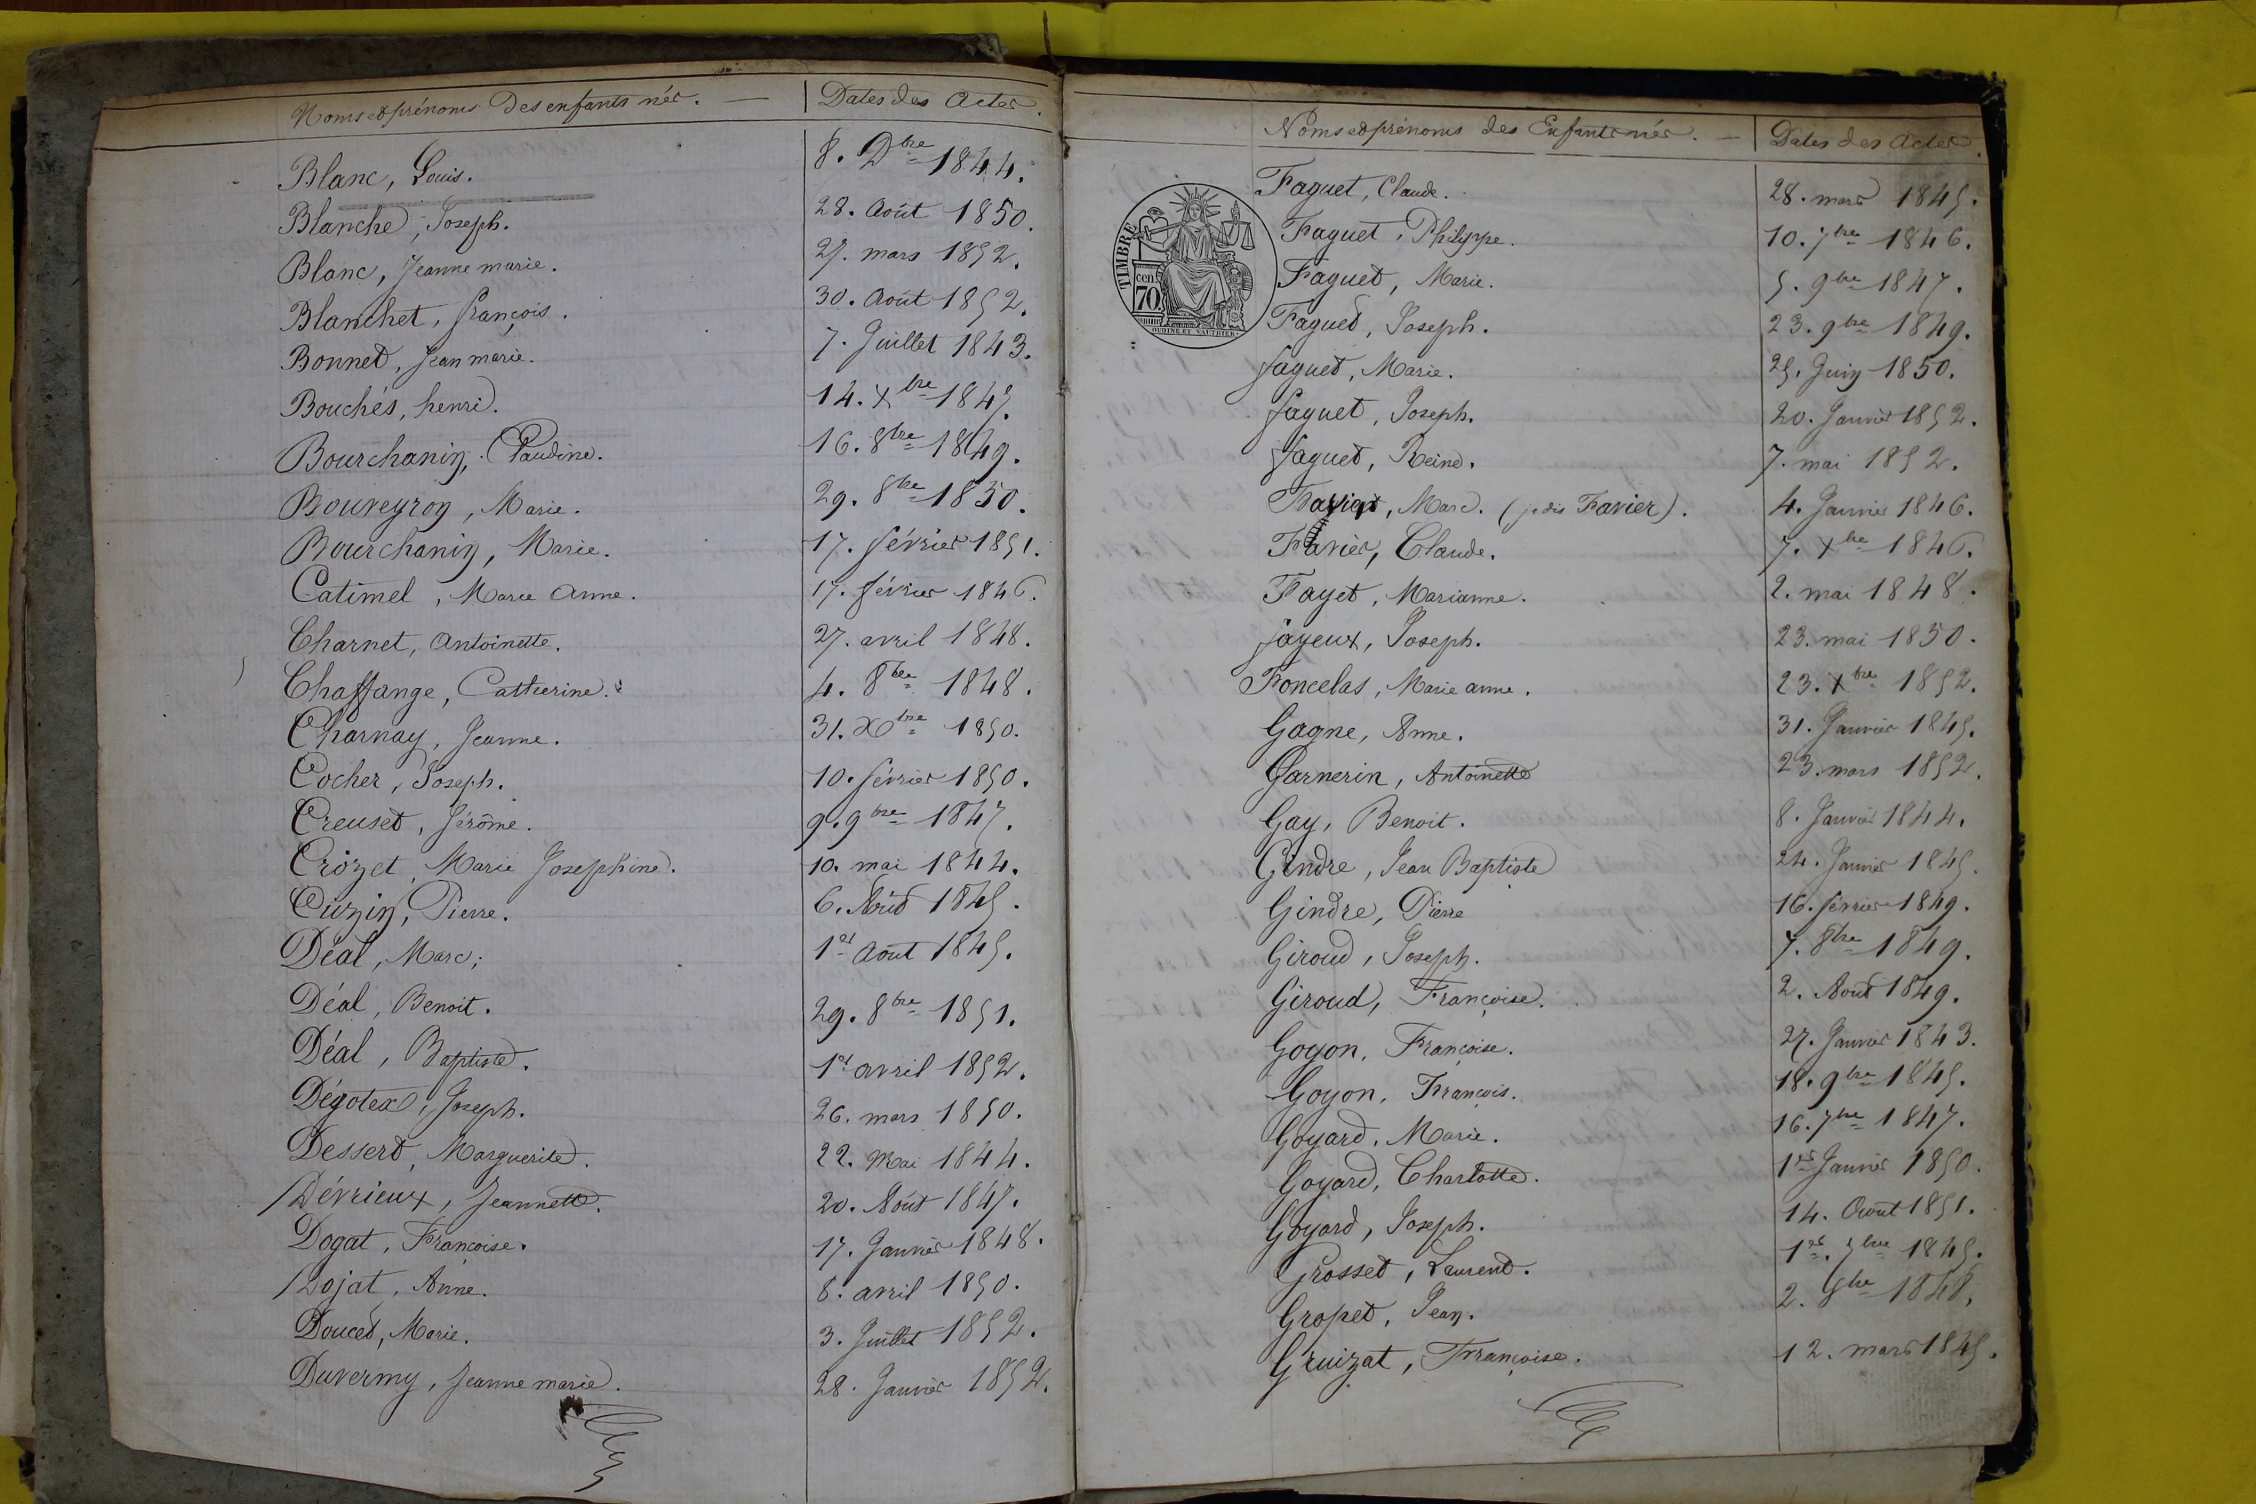 Noms et prénoms des enfants nés. — Dates des Actes.
Blanc, Louis. 8. Dbre 1844.
Blanche, Joseph. 28. Août 1850.
Blanc, Jeanne marie. 27. mars 1852.
Blanchet, françois. 30. Août 1852.
Bonnet, Jean marie. 7. Juillet 1843.
Bouchés, henri. 14. Xbre 1845.
Bourchanin, Claudine. 16. 8bre 1849.
Bouveyron, Marie. 29. 8bre 1850.
Bourchanin, Marie. 17. février 1851.
Catimel, Marie Anne. 17. février 1846.
Charnet, Antoinette. 27. avril 1848.
Chaffange, Catherine. 4. 8bre 1848.
Charnay, Jeanne. 31. Xbre 1850.
Cocher, Joseph. 10. février 1850.
Creuset, Jérôme. 9. 9bre 1847.
Crozet, Marie Josephine. 10. mai 1844.
Cuzin, Pierre. 6. Août 1845.
Déal, Marc; 1er Août 1845.
Déal, Benoit. 29. 8bre 1851.
Déal, Baptiste. 1er avril 1852.
Dégotex, Joseph. 26. mars 1850.
Dessert, Marguerite. 22. Mai 1844.
Dévrieux, Jeannette. 20. Août 1847.
Dogat, Françoise. 17. Janvier 1848.
Dojat, Anne. 8. avril 1850.
Doucet, Marie. 3. Juillet 1852.
Duvermy, Jeanne marie. 28. Janvier 1852.
Noms et prénoms des Enfants nés. — Dates des Actes.
TIMBRE
cen. 70
OUDINÉ ET VAUTHIER
Faguet, Claude. 28. mars 1845.
Faguet, Philippe. 10. 7bre 1846.
Faguet, Marie. 5. 9bre 1847.
Faguet, Joseph. 23. 9bre 1849.
faguet, Marie. 25. Juin 1850.
faguet, Joseph. 20. Janvier 1852.
faguet, Reine. 7. mai 1852.
Marc. (je dis Favier). 4. Janvier 1846.
Favier, Claude. 7. Xbre 1846.
Fayet, Marianne. 2. mai 1848.
fayeux, Joseph. 23. mai 1850.
Foncelas, Marie anne. 23. Xbre 1852.
Gagne, Anne. 31. Janvier 1845.
Garnerin, Antoinette 23. mars 1852.
Gay, Benoit. 8. Janvier 1844.
Gindre, Jean Baptiste 24. Janvier 1845.
Gindre, Pierre 16. février 1849.
Giroud, Joseph. 7. 8bre 1849.
Giroud, Françoise. 2. Août 1849.
Goyon, Françoise. 27. Janvier 1843.
Goyon, François. 18. 9bre 1845.
Goyard, Marie. 16. 7bre 1847.
Goyard, Charlotte. 1er Janvier 1850.
Goyard, Joseph. 14. Août 1851.
Grosset, Laurent. 1er. 7bre 1845.
Gropet, Jean. 2. 8bre 1848.
Gruizat, Françoise. 12. mars 1845.